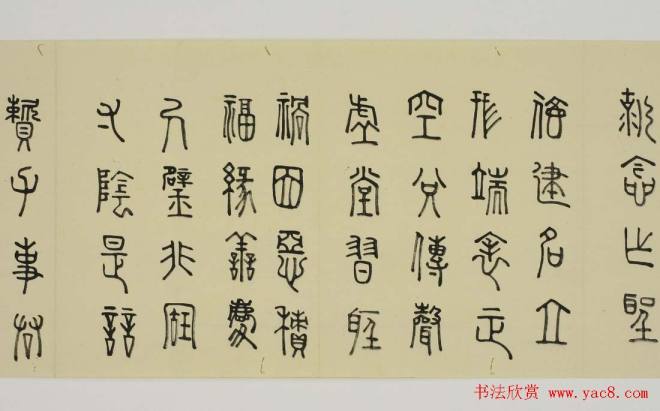 剋念作聖
德建名立
形端表正
空谷傳聲
虛堂習聽
禍因惡積
福緣善慶
尺璧非寶
寸陰是競
資父事君
书法欣赏 www.yac8.com